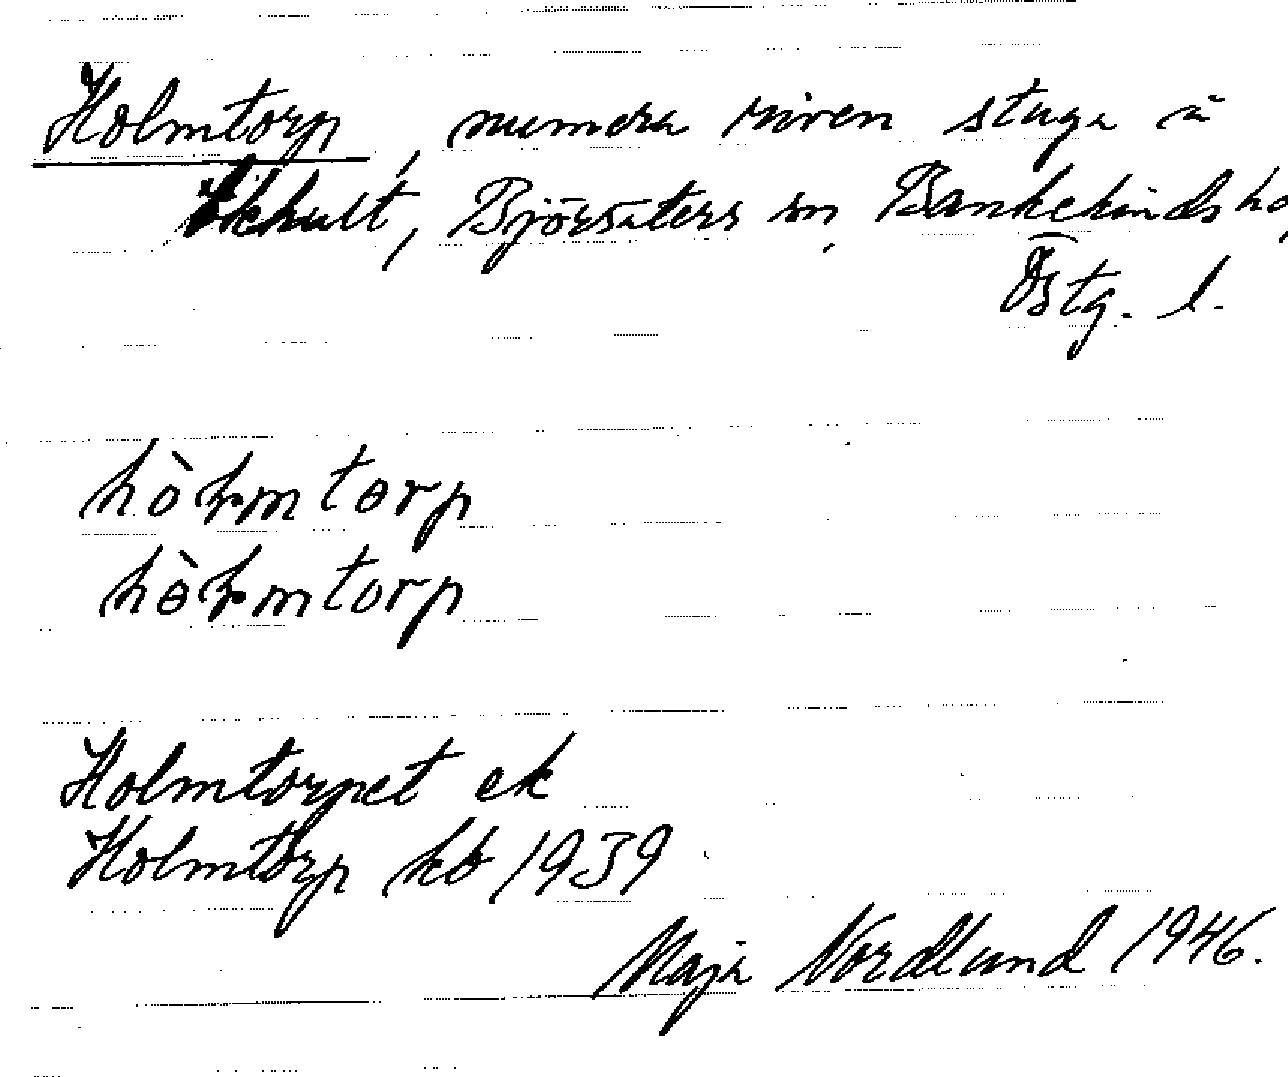 Holmtorp, numera riven stuga å
Ekhult, Björsäters sn, Bankekinds hd
Östg. l.
hòhmtorp
hòhmtorp
Holmtorpet ek
Holmtorp kb 1939
Maja Nordlund 1946.